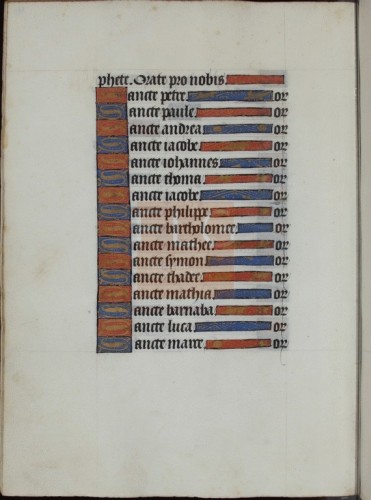 phete. Orate pro nobis
Sancte petre or
Sancte paule or
Sancte andrea or
Sancte iacobe or
Sancte iohannes or
Sancte thoma or
Sancte iacobe or
Sancte philippe or
Sancte bartholomee or
Sancte mathee or
Sancte symon or
Sancte thadee or
Sancte mathia or
Sancte barnaba or
Sancte luca or
Sancte marce or